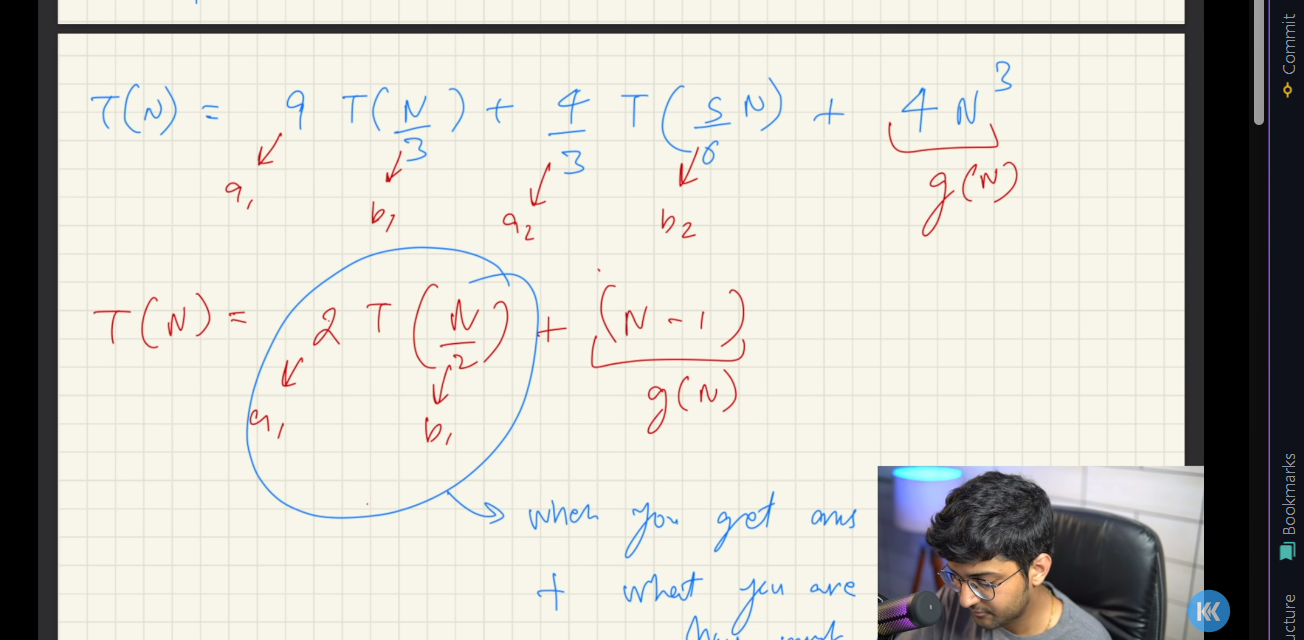 Commit
T(N) = 9 T(N/3) + 4/3 T(5/6 N) + 4N³
a₁ b₁ a₂ b₂ g(N)
T(N) = 2 T(N/2) + (N-1)
a₁ b₁ g(N)
when you get ans
+ what you are
Bookmarks
ucture